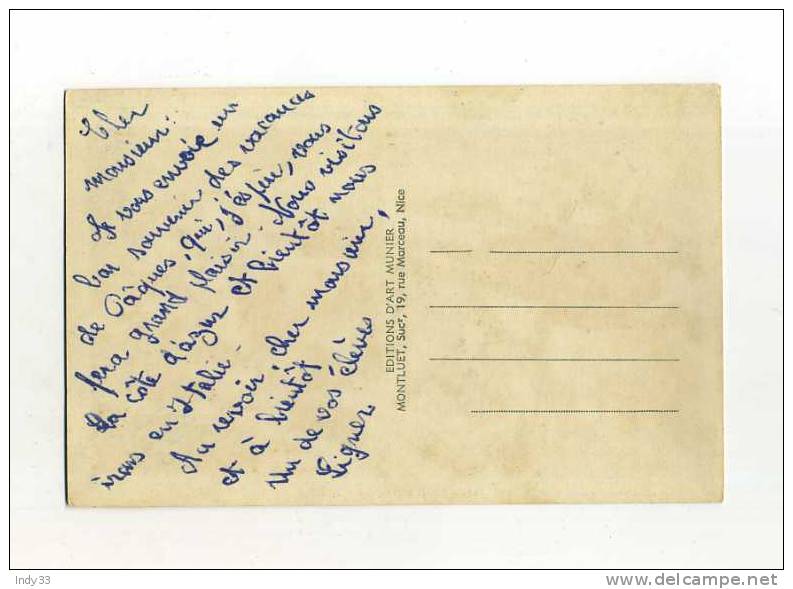 Cher
monsieur :
Je vous envoie un
bon souvenir des vacances
de Pâques, qui, j'espère, vous
fera grand plaisir. Nous visitons
la côte d'azur et bientôt nous
irons en Italie.
Au revoir, cher monsieur,
et à bientôt
Un de vos élèves
EDITIONS D'ART MUNIER
MONTLUET, Sucr, 19, rue Marceau, Nice
Indy33
delcampe.net